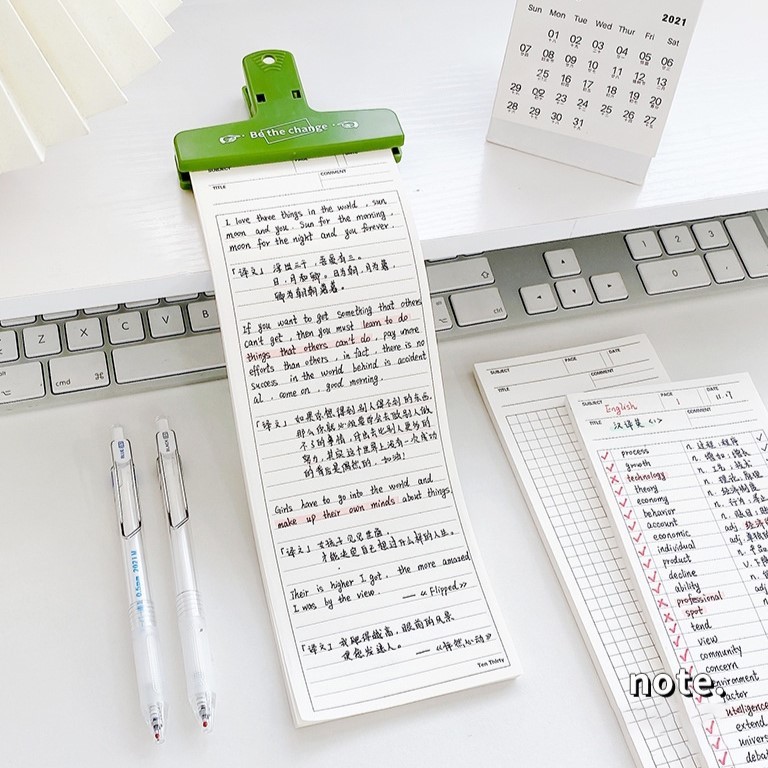 2021
Sun Mon Tue Wed Thur Fri Sat
01 02 03 04 05 06
07 08 09 10 11 12 13
25 16 17 18 19 20
29 23 24 25 26 27
28 29 30 31
Be the change
SUBJECT PAGE
TITLE COMMENT
I love three things in the world, sun
moon and you. Sun for the morning,
moon for the night and you forever.
「译文」浮世三千,吾爱有三。
日,月和卿。日为朝,月为暮,
卿为朝朝暮暮。
If you want to get something that others
can't get, then you must learn to do
things that others can't do, pay more
efforts than others, in fact, there is no
success in the world behind is accident
al, come on, good morning.
「译文」如果你想得到别人得不到的东西,
那么你就必须要学会做别人做
不了的事情,付出去比别人更多的
努力,其实这个世界上没有一次成功
的背后是偶然的,加油!
Girls have to go into the world and
make up their own minds about things.
「译文」女孩子见见世面,
才能决定自己想过什么样的人生。
Their is higher I got, the more amazed
I was by the view. —— 《Flipped》
「译文」我爬得越高,眼前的风景
便愈发迷人。—— 《怦然心动》
Ten Thirty
Z X C V B
cmd ⌘
alt
ctrl
1 2 3
0 .
BLUE
RED
0.5mm
SUBJECT PAGE DATE
TITLE COMMENT
SUBJECT English PAGE 1 DATE 11.9
TITLE 汉译英<1> COMMENT
process n. 过程,程序
growth n. 增加,增长
technology n. 工艺,技术
theory n. 理论,
economy n. 经济
behavior n. 行为,
account n.
economic adj. 经济
individual adj.
product n.
decline
ability n.
professional adj.
spot n.
tend
view
community
concern
environment
factor
intelligence
extend
debate
note.